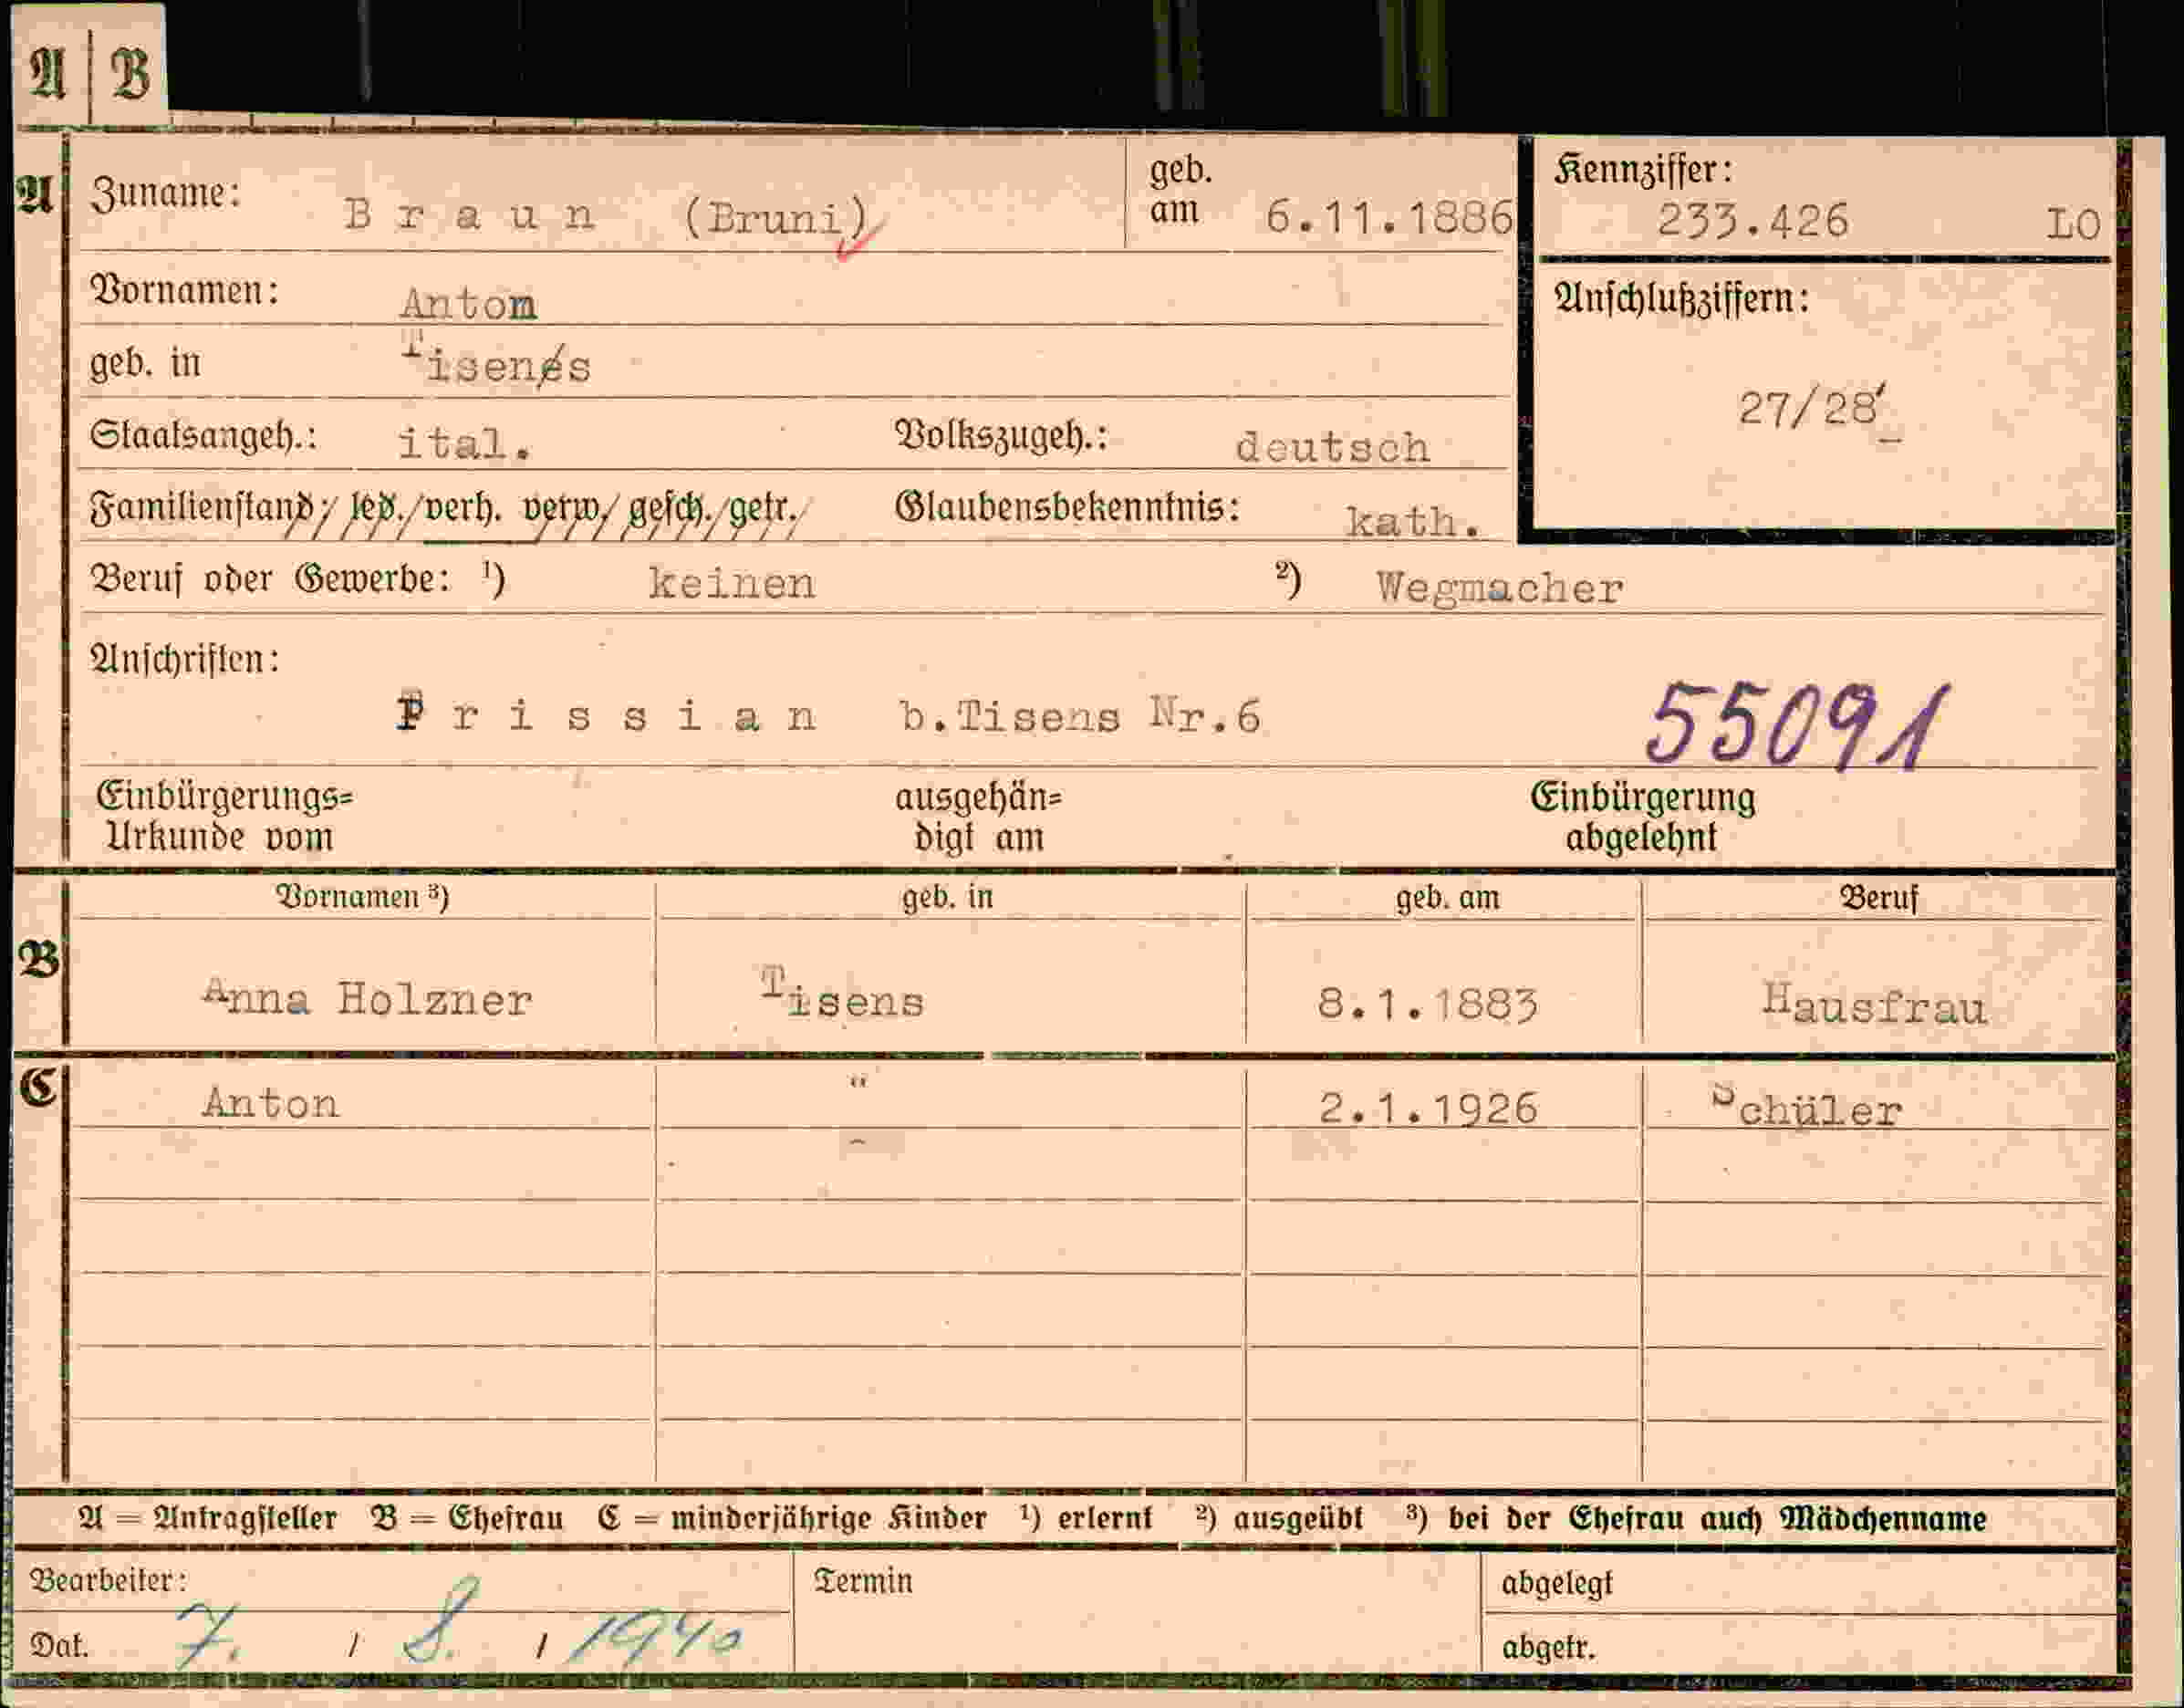 A | B
A Zuname: B r a u n (Bruni) geb. am 6.11.1886 Kennziffer: 233.426 LO
Vornamen: Anton
Anschlußziffern:
geb. in Tisens
27/28
Staatsangeh.: ital. Volkszugeh.: deutsch
Familienstand: led./verh. verw./gesch./getr. Glaubensbekenntnis: kath.
Beruf oder Gewerbe: ¹) keinen ²) Wegmacher
Anschriften:
P r i s s i a n b.Tisens Nr.6 55091
Einbürgerungs=
Urkunde vom
ausgehän=
digt am
Einbürgerung
abgelehnt
Vornamen ³) geb. in geb. am Beruf
B Anna Holzner Tisens 8.1.1883 Hausfrau
C Anton " 2.1.1926 Schüler
A = Antragsteller B = Ehefrau C = minderjährige Kinder ¹) erlernt ²) ausgeübt ³) bei der Ehefrau auch Mädchenname
Bearbeiter: Termin abgelegt
Dat. 7. / 8. / 1940 abgetr.